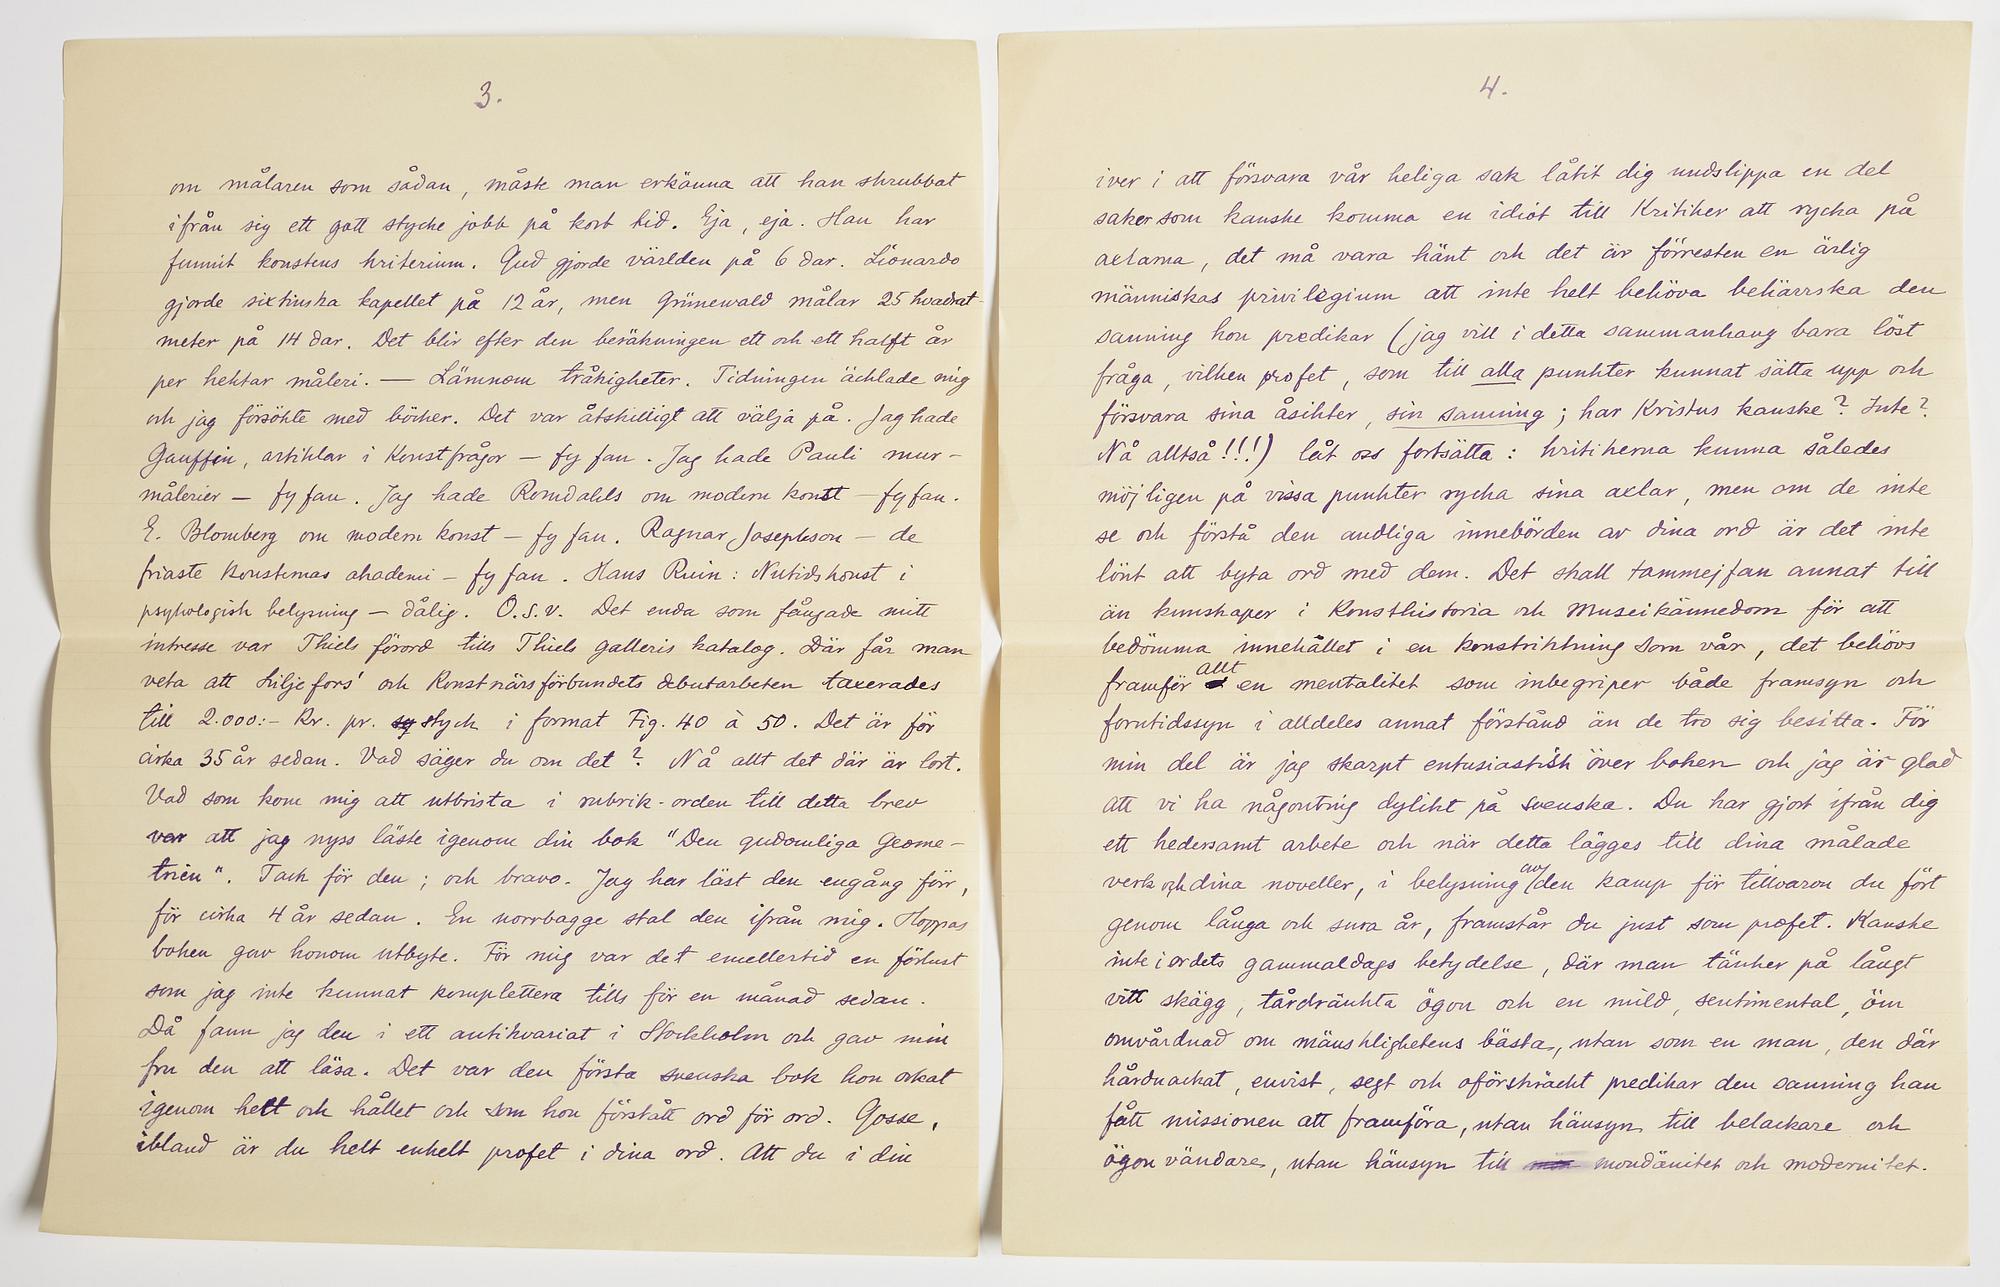 3.
om målaren som sådan, måste man erkänna att han skrubbat
ifrån sig ett gott stycke jobb på kort tid. Eja, eja. Han har
funnit konstens kriterium. Gud gjorde världen på 6 dar. Lionardo
gjorde sixtinska kapellet på 12 år, men Grünewald målar 25 kvadrat-
meter på 14 dar. Det blir efter den beräkningen ett och ett halft år
per hektar måleri. — Lämnom tråkigheter. Tidningen äcklade mig
och jag försökte med böcker. Det var åtskilligt att välja på. Jag hade
Gauffin, artiklar i Konstfrågor — fy fan. Jag hade Pauli mur-
målerier — fy fan. Jag hade Romdahls om modern konst — fy fan.
E. Blomberg om modern konst — fy fan. Ragnar Josephson — de
friaste konsternas akademi — fy fan. Hans Ruin: Nutidskonst i
psykologisk belysning — dålig. O.S.V. Det enda som fångade mitt
intresse var Thiels förord tills Thiels galleris katalog. Där får man
veta att Liljefors' och Konstnärsförbundets debutarbeten taxerades
till 2.000:- Kr. pr. styck i format Fig. 40 à 50. Det är för
cirka 35 år sedan. Vad säger du om det? Nå allt det där är lort.
Vad som kom mig att utbrista i rubrik-orden till detta brev
var att jag nyss läste igenom din bok "Den gudomliga Geome-
trien". Tack för den; och bravo. Jag har läst den engång förr,
för cirka 4 år sedan. En norrbagge stal den ifrån mig. Hoppas
boken gav honom utbyte. För mig var det emellertid en förlust
som jag inte kunnat komplettera tills för en månad sedan.
Då fann jag den i ett antikvariat i Stockholm och gav min
fru den att läsa. Det var den första svenska bok hon orkat
igenom helt och hållet och som hon förstått ord för ord. Gosse,
ibland är du helt enkelt profet i dina ord. Att du i din
4.
iver i att försvara vår heliga sak låtit dig undslippa en del
saker som kanske komma en idiot till Kritiker att rycka på
axlarna, det må vara hänt och det är förresten en ärlig
människas privilegium att inte helt behöva behärrska den
sanning hon predikar (jag vill i detta sammanhang bara löst
fråga, vilken profet, som till alla punkter kunnat sätta upp och
försvara sina åsikter, sin sanning; har Kristus kanske? Inte?
Nå alltså!!!) låt oss fortsätta: kritikerna kunna således
möjligen på vissa punkter rycka sina axlar, men om de inte
se och förstå den andliga innebörden av dina ord är det inte
lönt att byta ord med dem. Det skall tammejfan annat till
än kunskaper i Konsthistoria och Museikännedom för att
bedömma innehållet i en konstriktning som vår, det behövs
framför allt en mentalitet som inbegriper både framsyn och
forntidssyn i alldeles annat förstånd än de tro sig besitta. För
min del är jag skarpt entusiastisk över boken och jag är glad
att vi ha någonting dylikt på svenska. Du har gjort ifrån dig
ett hedersamt arbete och när detta lägges till dina målade
verk och dina noveller, i belysning av den kamp för tillvaron du fört
genom långa och sura år, framstår du just som profet. Kanske
inte i ordets gammaldags betydelse, där man tänker på långt
vitt skägg, tårdränkta ögon och en mild, sentimental, öm
omvårdnad om mänsklighetens bästa, utan som en man, den där
hårdnackat, envist, segt och oförskräckt predikar den sanning han
fått missionen att framföra, utan hänsyn till belackare och
ögonvändare, utan hänsyn till mondänitet och modernitet.